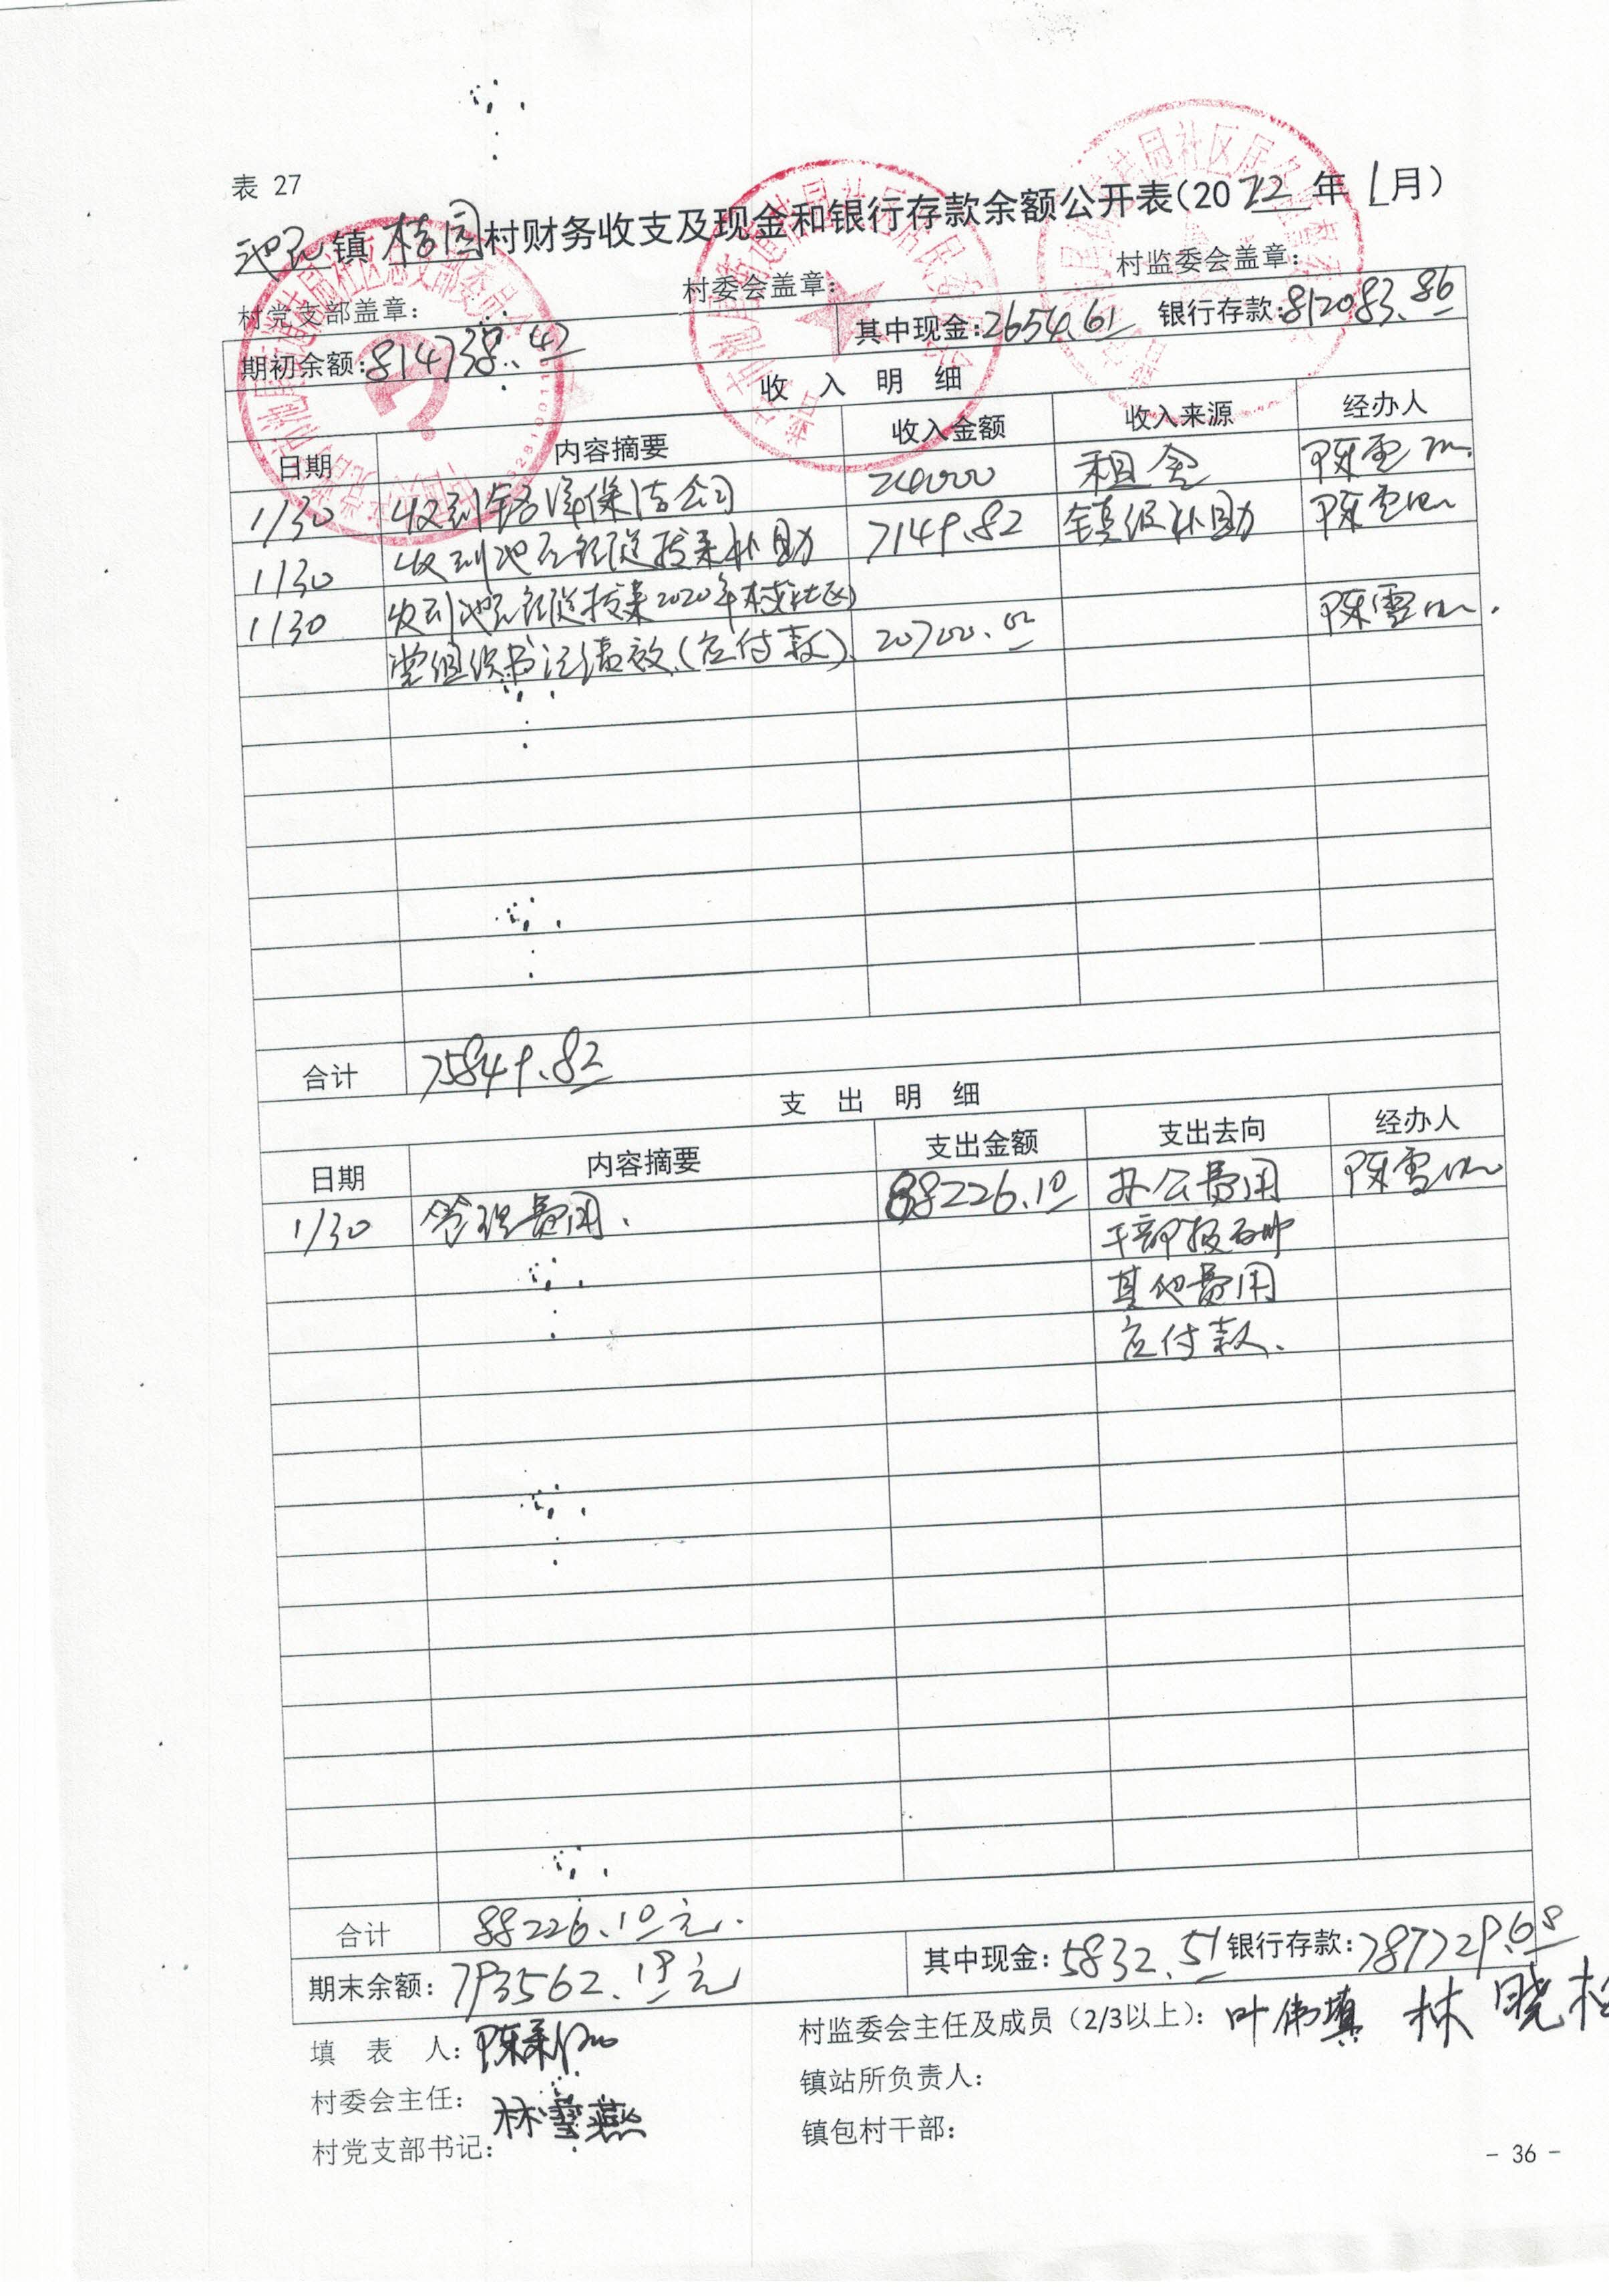 表 27
池店镇桂园村财务收支及现金和银行存款余额公开表(2022年1月)
村党支部盖章: 村委会盖章: 村监委会盖章:
期初余额:814738.47 其中现金:2654.61 银行存款:812083.86
收 入 明 细
日期 内容摘要 收入金额 收入来源 经办人
1/30 收到 保洁公司 租金 陈雪
1/30 收到池店街道拨来补助 7149.82 镇级补助 陈雪
1/30 收到池店街道拨来2020年村(社区)
党组织书记绩效(应付款) 20700.00 陈雪
合计 75849.82
支 出 明 细
日期 内容摘要 支出金额 支出去向 经办人
1/30 管理费用. 88226.10 办公费用 陈雪
干部报酬
其他费用
应付款.
合计 88226.10元.
期末余额:793562.19元 其中现金:5832.51 银行存款:787729.68
填 表 人:陈 村监委会主任及成员(2/3以上):叶伟填 林晓松
村委会主任: 林雪燕 镇站所负责人:
村党支部书记: 镇包村干部:
- 36 -